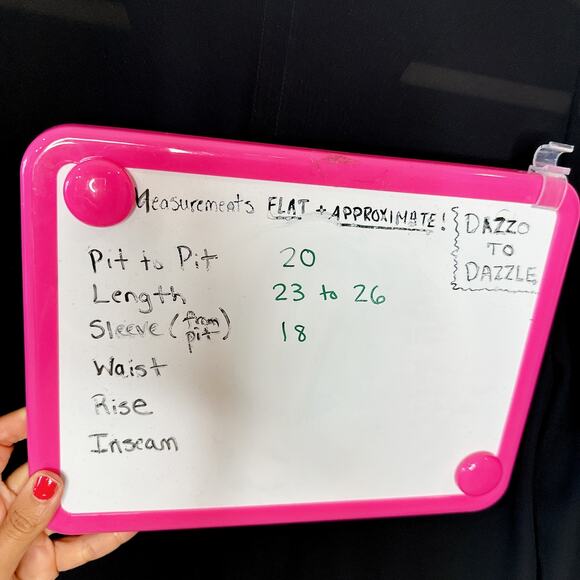 Measurements FLAT + APPROXIMATE!
DAZZO
TO
DAZZLE
Pit to Pit 20
Length 23 to 26
Sleeve (from pit) 18
Waist
Rise
Inseam